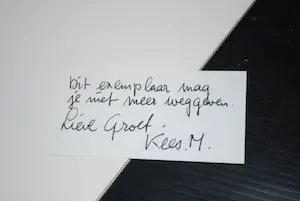 Dit exemplaar mag
je niet meer weggeven.
Lieve Groet.
Kees.M.